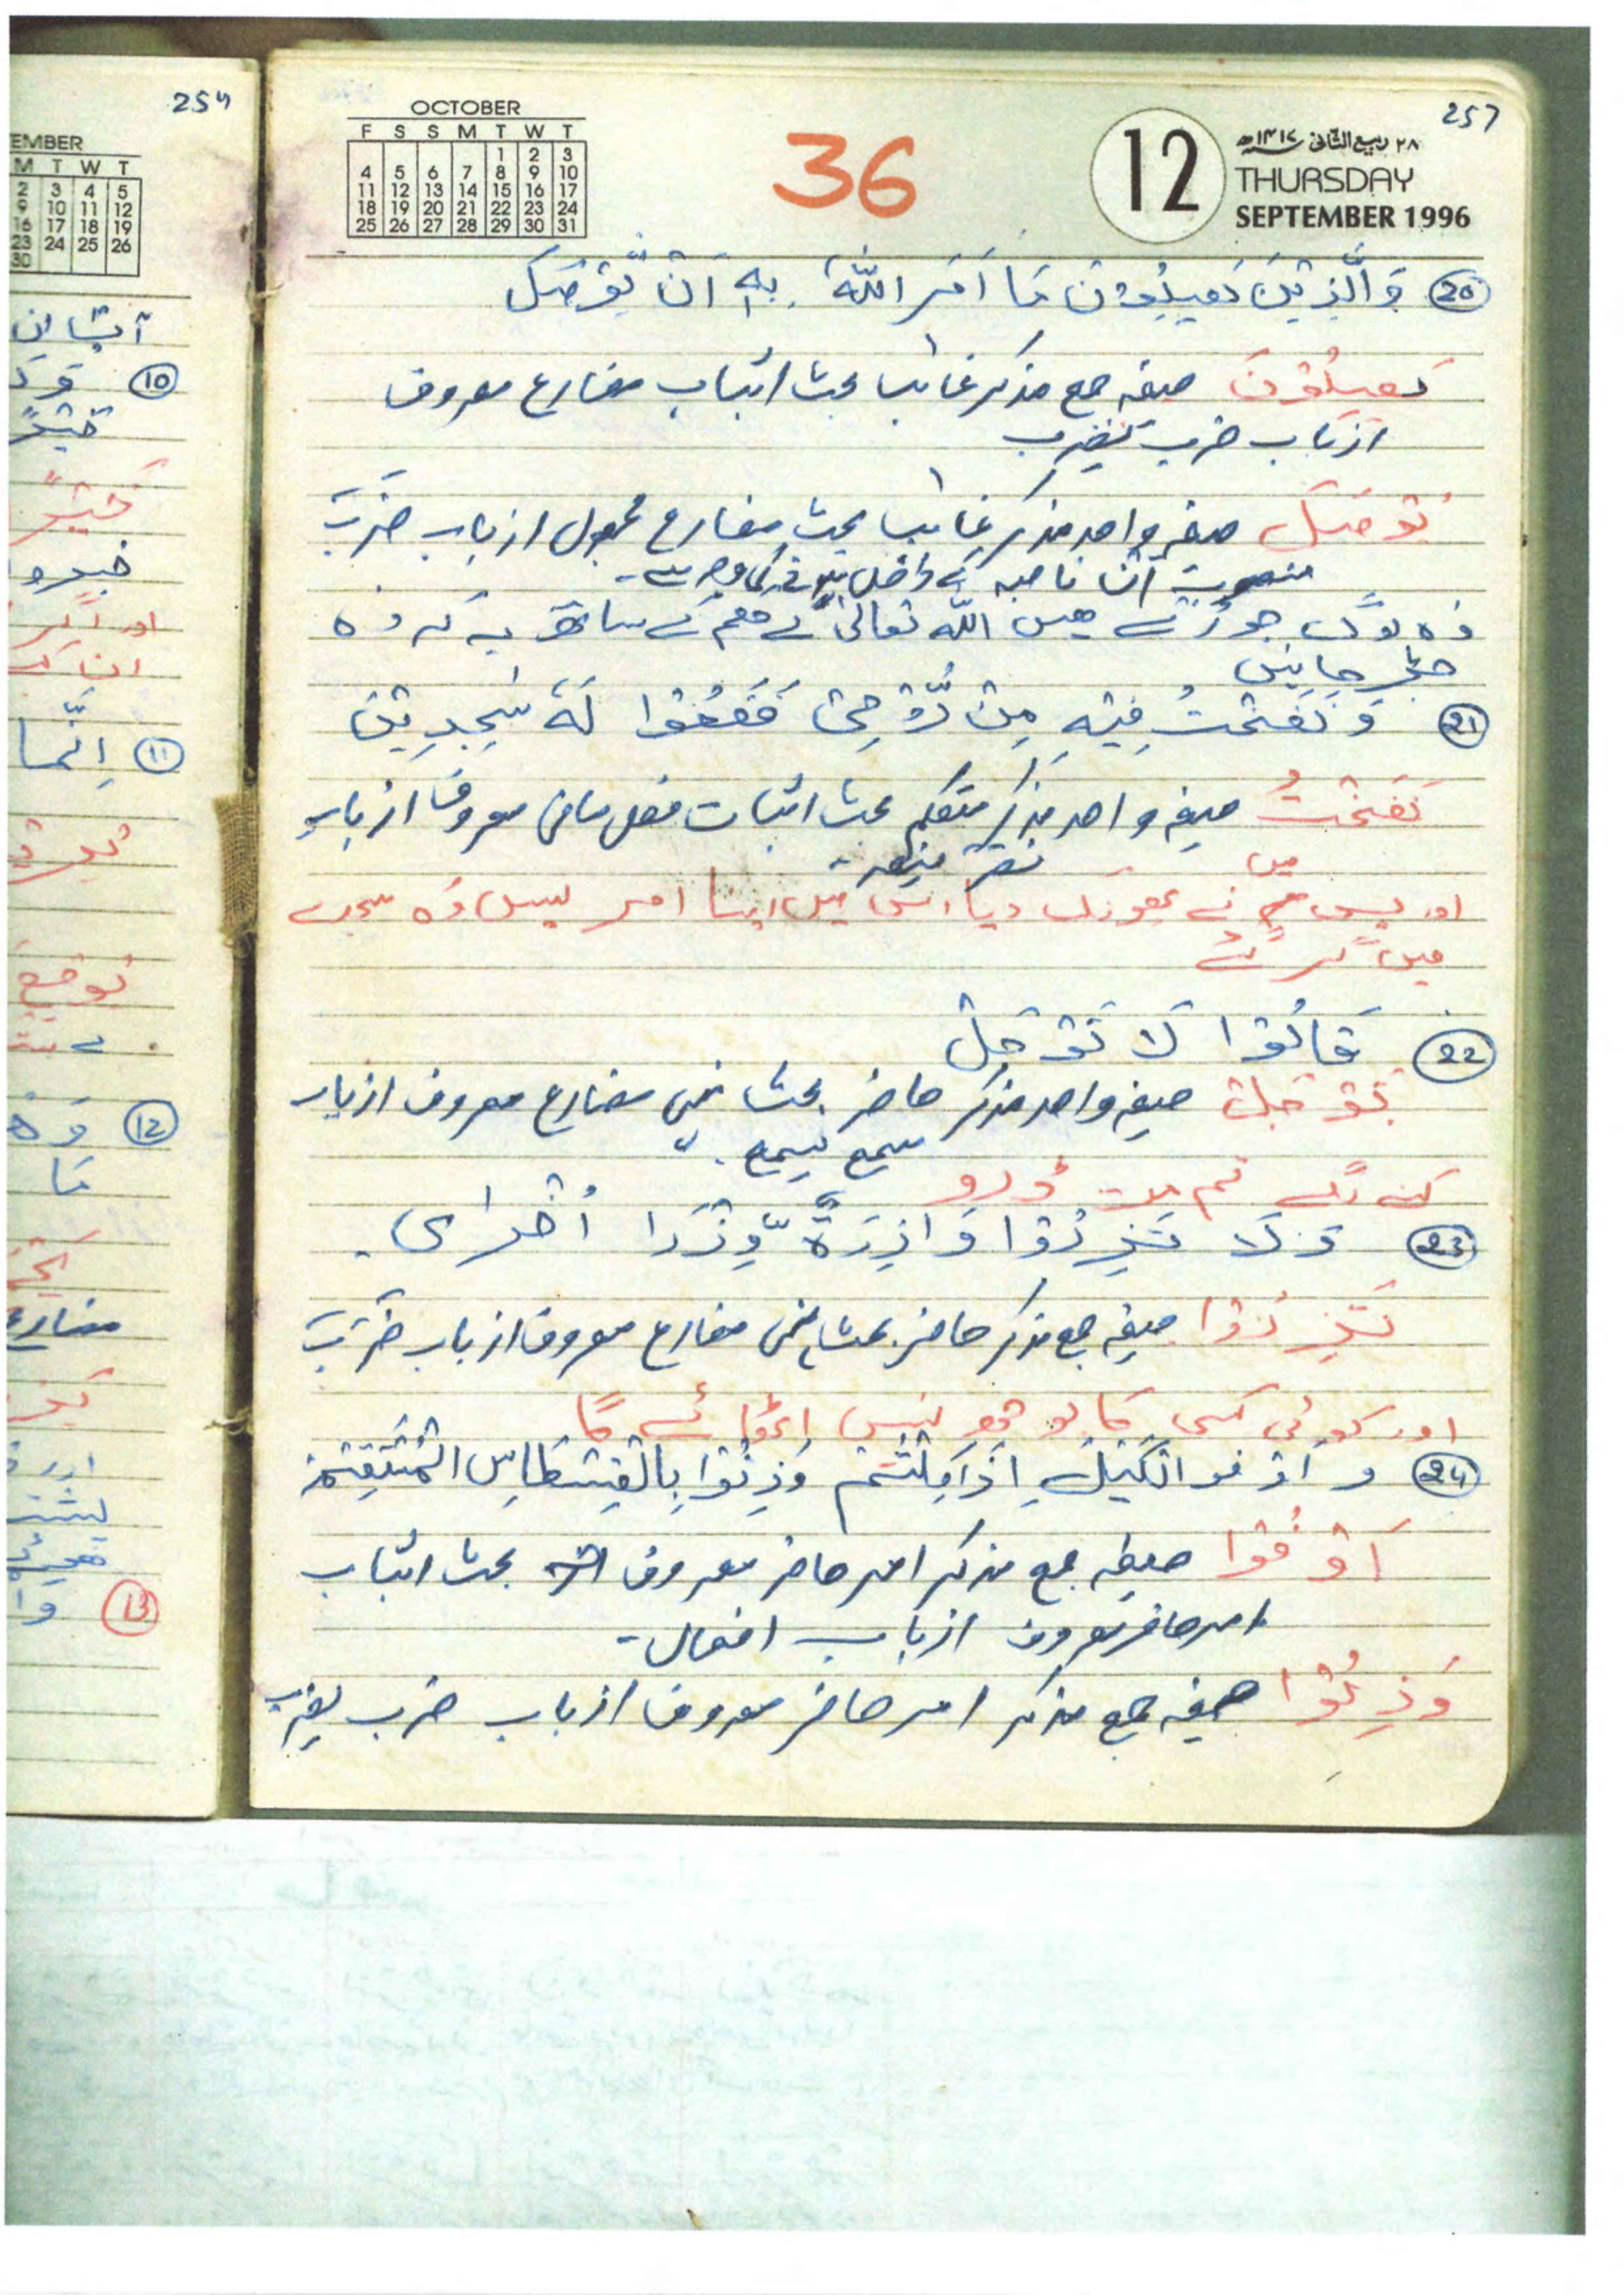 257
OCTOBER
F S S M T W T
1 2 3
4 5 6 7 8 9 10
11 12 13 14 15 16 17
18 19 20 21 22 23 24
25 26 27 28 29 30 31
36
12
۲۸ ربیع الثانی ۱۴۱۷ھ
THURSDAY
SEPTEMBER 1996
20 وَالَّذِیْنَ یَصِلُوْنَ مَا اَمَرَ اللّٰهُ بِهٖ اَنْ یُّوْصَلَ
یَصِلُوْنَ صیغہ جمع مذکر غائب بحث اثبات مضارع معروف
از باب ضرب یضرب
یُوْصَلَ صیغہ واحد مذکر غائب بحث مضارع مجہول از باب ضَرَبَ
منصوب اَن ناصبہ کے داخل ہونے کی وجہ سے۔
وہ لوگ جوڑتے ہیں اللہ تعالیٰ کے حکم کے ساتھ یہ کہ وہ
جڑ جائیں
21 وَ نَفَخْتُ فِیْهِ مِنْ رُّوْحِیْ فَقَعُوْا لَهٗ سٰجِدِیْنَ
نَفَخْتُ صیغہ واحد مذکر متکلم بحث اثبات فعل ماضی معروف از باب
نصر ینصر۔
میں
اور پس نے پھونک دیا اس میں اپنا امر پس وہ سجدے
میں گر گئے
22 قَالُوْا لَا تَوْجَلْ
تَوْجَلْ صیغہ واحد مذکر حاضر بحث نہی مضارع معروف از باب
سمع یسمع۔
کہنے لگے تم مت ڈرو
23 وَلَا تَزِرُوْا وَازِرَةٌ وِّزْرَا اُخْرٰی۔
تَزِرُوْا صیغہ جمع مذکر حاضر بحث نہی مضارع معروف از باب ضَرَبَ
اور کوئی کسی کا بوجھ نہیں اٹھائے گا
24 وَ اَوْفُو الْکَیْلَ اِذَا کِلْتُمْ وَزِنُوْا بِالْقِسْطَاسِ الْمُسْتَقِیْمْ
اَوْفُوْا صیغہ جمع مذکر امر حاضر معروف بحث اثبات
امر حاضر معروف از باب افعال۔
وَزِنُوْا صیغہ جمع مذکر امر حاضر معروف از باب ضرب یضرب
EMBER
M T W T
2 3 4 5
9 10 11 12
16 17 18 19
23 24 25 26
30
10
11 اِنَّمَا
12
مَا
مضارع
13